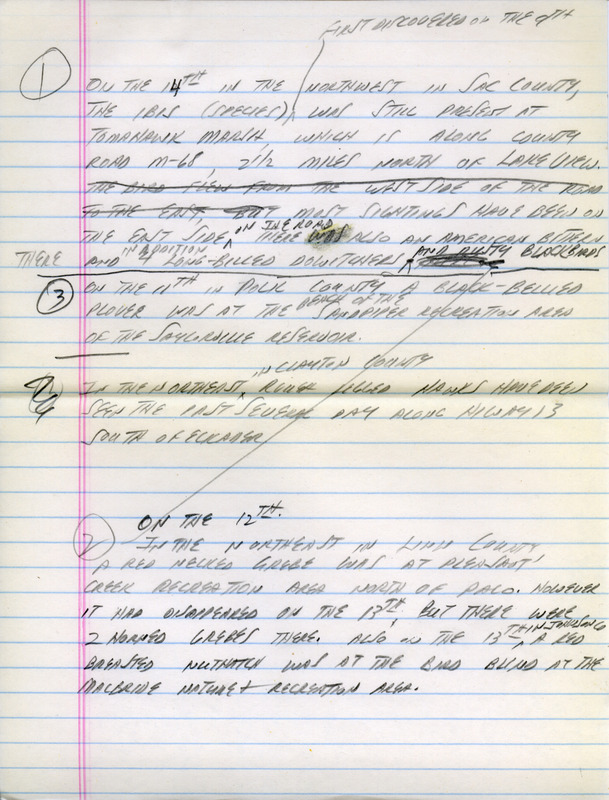 FIRST DISCOVERED ON THE 9TH
1
ON THE 14TH IN THE NORTHWEST IN SAC COUNTY,
THE IBIS (SPECIES) WAS STILL PRESENT AT
TOMAHAWK MARSH, WHICH IS ALONG COUNTY
ROAD M-68, 2 1/2 MILES NORTH OF LAKE VIEW.
THE BIRD VIEW FROM THE WEST SIDE OF THE ROAD
TO THE EAST, BUT MOST SIGHTINGS HAVE BEEN ON
THE EAST SIDE, ON THE ROAD THERE WAS ALSO AN AMERICAN BITTERN
THERE AND IN ADDITION LONG-BILLED DOWITCHERS AND RUSTY BLACKBIRDS
3
ON THE 11TH IN POLK COUNTY A BLACK-BELLIED
PLOVER WAS AT THE BEACH OF THE SANDPIPER RECREATION AREA
OF THE SAYLORVILLE RESERVOIR.
IN CLAYTON COUNTY
IN THE NORTHEAST, ROUGH LEGGED HAWKS HAVE BEEN
SEEN THE PAST SEVERAL DAY ALONG HIWAY 13
SOUTH OF ELKADER
ON THE 12TH.
2
IN THE NORTHEAST IN LINN COUNTY
A RED NECKED GREBE WAS AT PLEASANT
CREEK RECREATION AREA NORTH OF PALO. HOWEVER
IT HAD DISAPPEARED ON THE 13TH, BUT THERE WERE
2 HORNED GREBES THERE. ALSO ON THE 13TH IN JOHNSON CO A RED
BREASTED NUTHATCH WAS AT THE BIRD BLIND AT THE
MACBRIDE NATURE + RECREATION AREA.